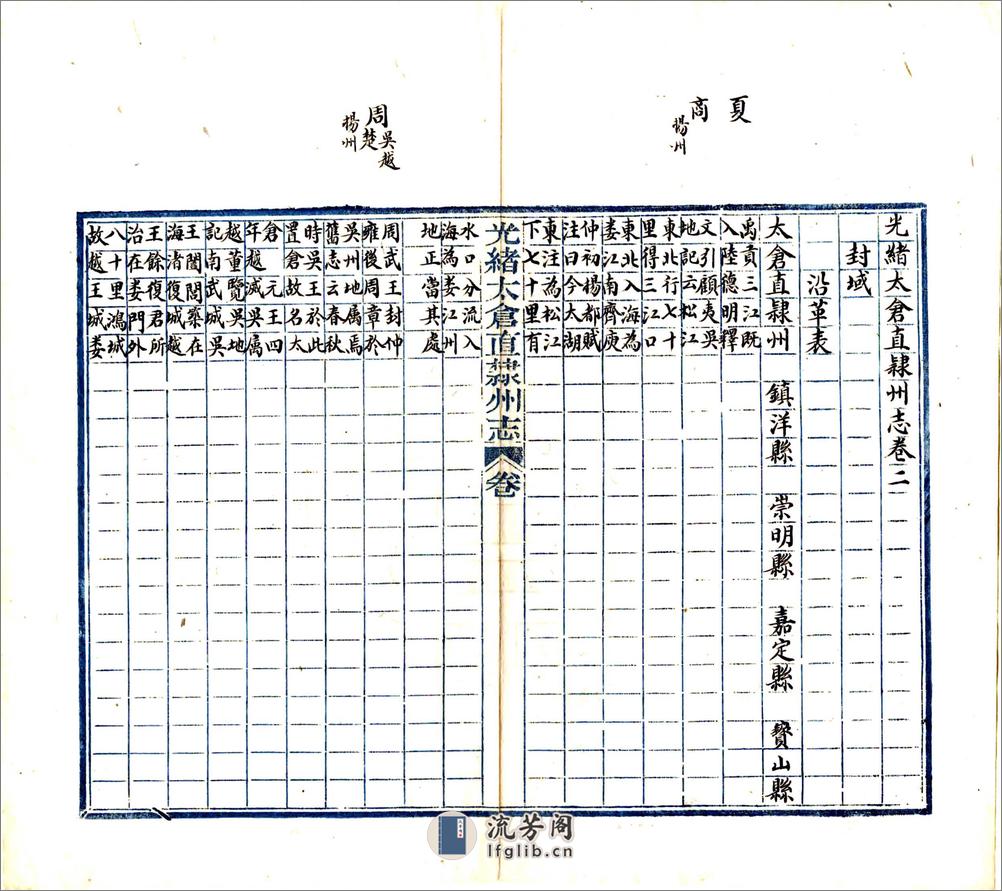 夏
商
揚州
光緒太倉直隸州志卷二
封域
沿革表
太倉直隸州 鎮洋縣 崇明縣 嘉定縣 寶山縣
禹貢三江既
入陸德明釋
文引顧夷吳
地記云松江
東北行七十
里得三江口
東北入海為
婁江南齊庾
仲初楊都賦
注曰今太湖
東注為松江
下七十里有
光緒太倉直隸州志 卷
吳越
周楚
揚州
水口分流入
海為婁江州
地正當其處
周武王封仲
雍後周章於
吳州地屬焉
舊志云春秋
時吳王於此
置倉故名太
倉元王四
年越滅吳屬
越董覽吳地
記南武城吳
王闔閭築在
海渚復城越
王餘復君所
治在婁門外
八十里鴻城
故越王城婁
流芳阁
lfglib.cn